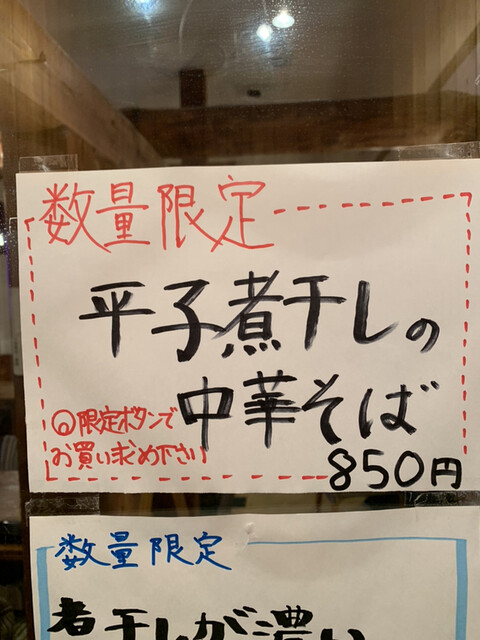 数量限定
平子煮干しの
中華そば
◎限定ボタンで
お買い求め下さい
850円
数量限定
煮干しが濃い